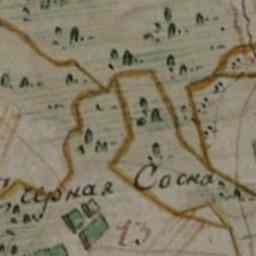 серная Сосна
13